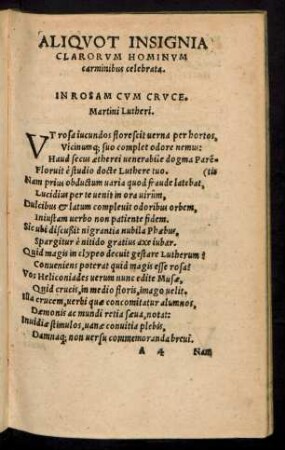 ALIQVOT INSIGNIA
CLARORVM HOMINVM
carminibus celebrata.
IN ROSAM CVM CRVCE.
Martini Lutheri.
VT rosa iucundos florescit uerna per hortos,
Vicinumq; suo complet odore nemus:
Haud secus ætherei uenerabile dogma Parē-
Floruit è studio docte Luthere tuo. (tis
Nam prius obductum uaria quod fraude latebat,
Lucidius per te uenit in ora uirûm,
Dulcibus & latum compleuit odoribus orbem,
Iniustam uerbo non patiente fidem.
Sic ubi discußit nigrantia nubila Phœbus,
Spargitur è nitido gratius axe iubar.
Quid magis in clypeo decuit gestare Lutherum?
Conueniens poterat quid magis esse rosa?
Vos Heliconiades uerum nunc edite Musæ,
Quid crucis, in medio floris, imago uelit.
Illa crucem, uerbi quæ concomitatur alumnos,
Dæmonis ac mundi retia sæua, notat:
Inuidiæ stimulos, uanæ conuitia plebis,
Damnaq; non uersu commemoranda breui.
A 4 Nam